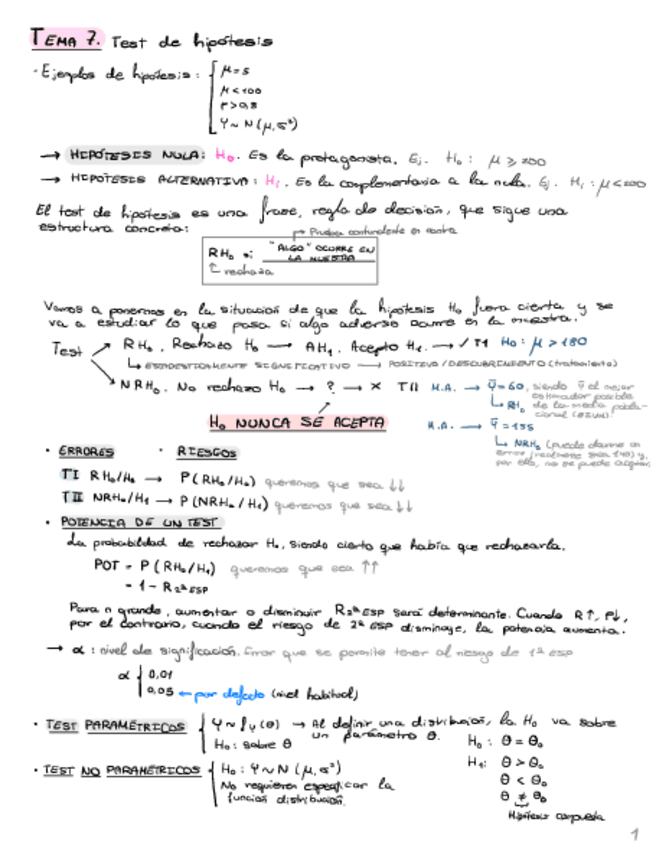 TEMA 7. Test de hipótesis
· Ejemplos de hipótesis: { μ = 5
μ < 100
r > 0,8
Y ~ N (μ, σ²)
→ HIPÓTESIS NULA: H₀. Es la protagonista. Ej. H₀: μ ≥ 200
→ HIPÓTESIS ALTERNATIVA: H₁. Es la complementaria a la nula. Ej. H₁: μ < 200
El test de hipótesis es una frase, regla de decisión, que sigue una
estructura concreta:
→ Prueba contundente en contra
RH₀ si "ALGO" OCURRE EN
LA MUESTRA
↳ rechaza
Vamos a ponernos en la situación de que la hipótesis H₀ fuera cierta y se
va a estudiar lo que pasa si algo adverso ocurre en la muestra.
Test
RH₀. Rechazo H₀ → AH₁. Acepto H₁. → ✓ TI
↳ ESTADÍSTICAMENTE SIGNIFICATIVO → POSITIVO / DESCUBRIMIENTO (tratamiento)
NRH₀. No rechazo H₀ → ? → × TII
H₀ NUNCA SE ACEPTA
H₀: μ > 180
M.A. → ȳ = 60, siendo ȳ el mejor
estimador posible
↳ RH₀ de la media pobla-
cional
M.A. → ȳ = 155
↳ NRH₀ (puede darme un
error, realmente sea 140) y,
por ello, no se puede
· ERRORES · RIESGOS
TI RH₀/H₀ → P (RH₀/H₀) queremos que sea ↓↓
TII NRH₀/H₁ → P (NRH₀/H₁) queremos que sea ↓↓
· POTENCIA DE UN TEST
La probabilidad de rechazar H₀, siendo cierto que había que rechazarla.
POT = P (RH₀/H₁) queremos que sea ↑↑
= 1 - R 2ª ESP
Para n grande, aumentar o disminuir R 2ª ESP será determinante. Cuando R↑, P↓,
por el contrario, cuando el riesgo de 2ª ESP disminuye, la potencia aumenta.
→ α: nivel de significación. Error que se permite tener al riesgo de 1ª ESP
α { 0,01
0,05 ← por defecto (nivel habitual)
· TEST PARAMÉTRICOS { Y ~ f_Y (θ) → Al definir una distribución, la H₀ va sobre
un parámetro θ.
H₀: sobre θ
H₀: θ = θ₀
H₁: θ > θ₀
θ < θ₀
θ ≠ θ₀
Hipótesis compuesta
· TEST NO PARAMÉTRICOS { H₀: Y ~ N (μ, σ²)
No requieren especificar la
función distribución.
1